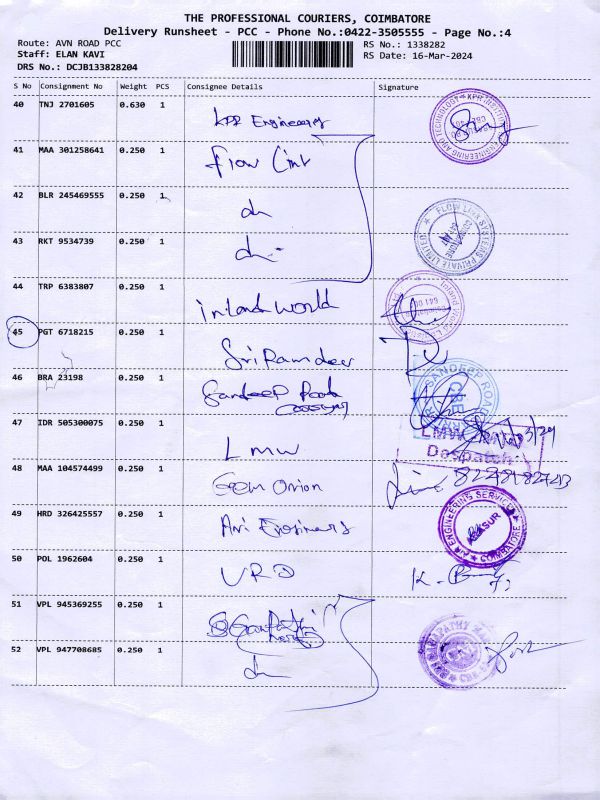 THE PROFESSIONAL COURIERS, COIMBATORE
Delivery Runsheet - PCC - Phone No.:0422-3505555 - Page No.:4
Route: AVN ROAD PCC RS No.: 1338282
Staff: ELAN KAVI RS Date: 16-Mar-2024
DRS No.: DCJB133828204
S No Consignment No Weight PCS Consignee Details Signature
40 TNJ 2701605 0.630 1
KPR Engineering
41 MAA 301258641 0.250 1
Flow Link
42 BLR 245469555 0.250 1
do
43 RKT 9534739 0.250 1
do
FLOW LINK SYSTEMS PRIVATE LIMITED
44 TRP 6383807 0.250 1
inland world
45 PGT 6718215 0.250 1
Sri Ramdev
46 BRA 23198 0.250 1
Sandeep Roads
SANDEEP ROAD
47 IDR 505300075 0.250 1
LMW
LMW
Despatch
48 MAA 104574499 0.250 1
Gem Orion
49 HRD 326425557 0.250 1
Avi Engineers
ENGINEERING SERVICES
COIMBATORE
50 POL 1962604 0.250 1
URD
51 VPL 945369255 0.250 1
Ganpathi
52 VPL 947708685 0.250 1
do